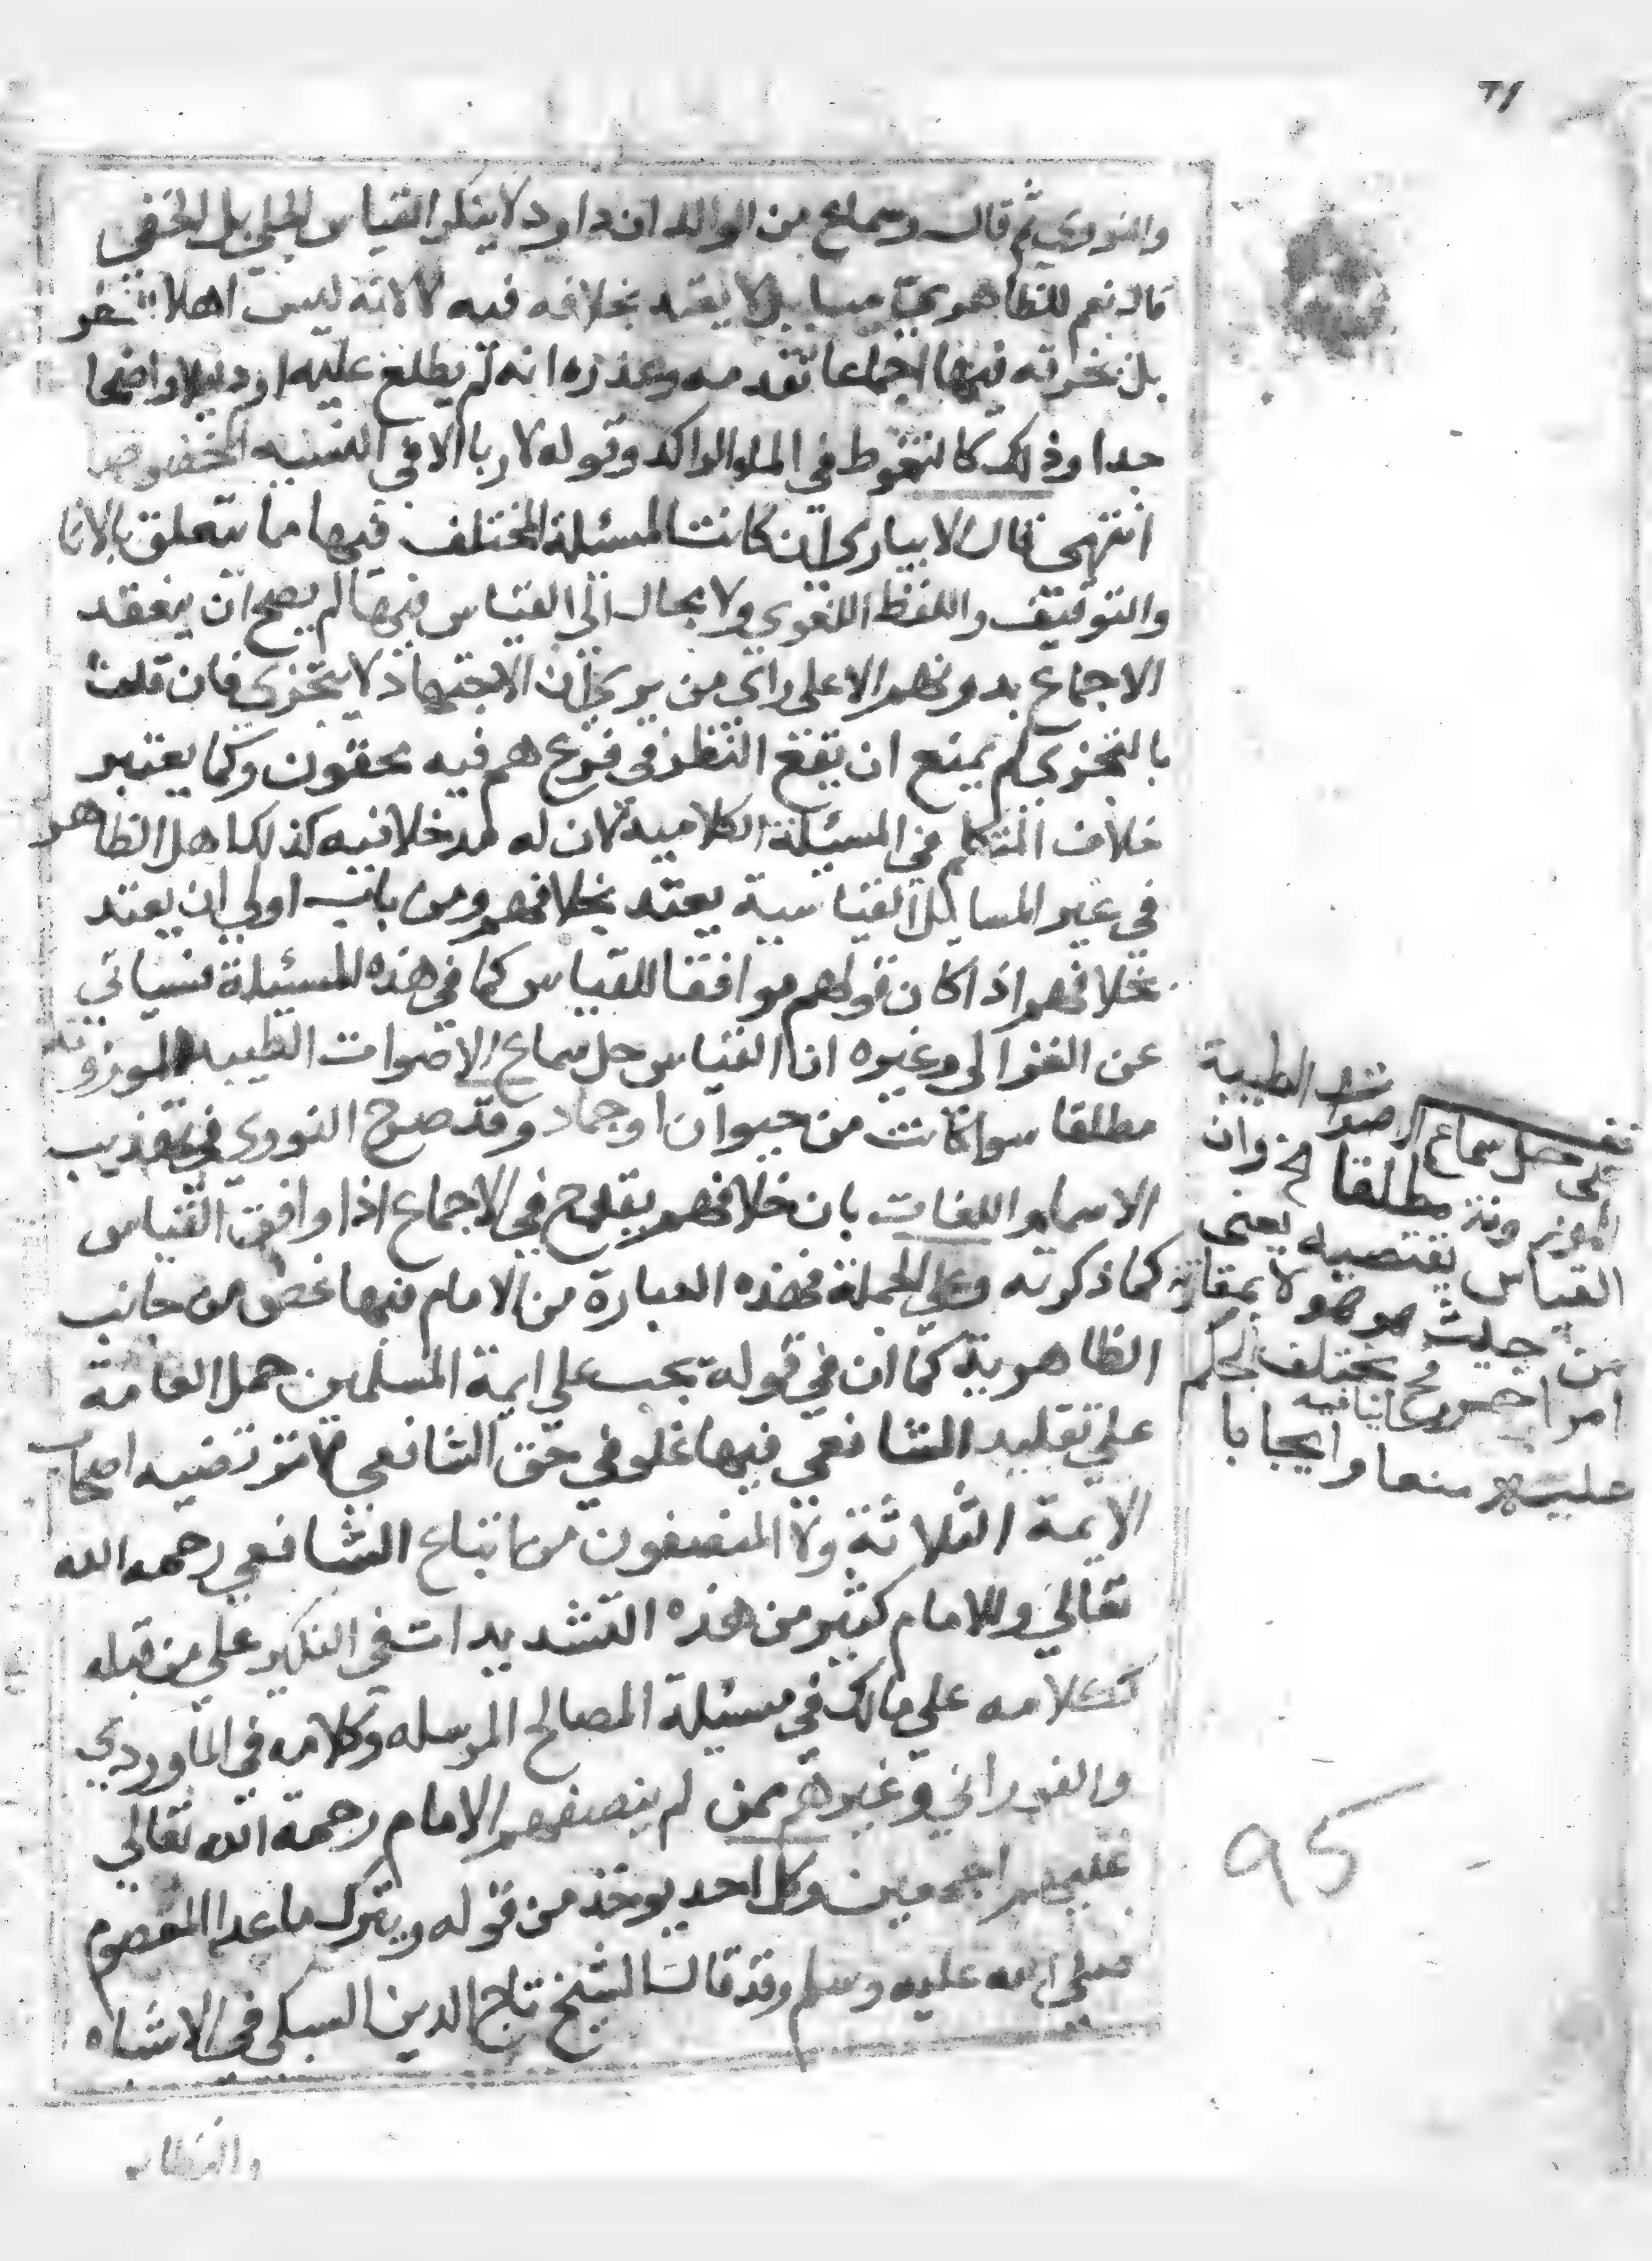 والنووي ثم قال وسماع من الوالد ان داود لا ينكر القياس الجلي بل الخفي
قال نعم للظاهرية مسايل لا يعتد بخلافه فيه لا لانه ليس اهلا للنظر
بل لخرقه فيها اجماعا تقدمه وعذره انه لم يطلع عليه او دليلا واضحا
جدا وذلك كالتغوط في الماء الراكد وقوله لا ربا الا في الستة المخصوصة
انتهي قال الابياري ان كانت المسئلة المختلف فيها ما يتعلق بالاثار
والتوقيف واللفظ اللغوي ولا مجال الي القياس فيها لم يصح ان ينعقد
الاجماع بدونهم الا على راي من يري ان الاجتهاد لا يتجزي فان قلنا
بالتجزي لم يمنع ان يقع النظر في فرع هم فيه محقون وكما يعتبر
خلاف المتكلم في المسئلة الكلامية لان له مدخلا فيه كذلك اهل الظاهر
في غير المسايل القياسية يعتد بخلافهم ومن باب اولي ان يعتد
بخلافهم اذا كان قولهم موافقا للقياس كما في هذه المسئلة فسياتي
عن الغزالي وغيره ان القياس حل سماع الاصوات الطيبة الموزونة
مطلقا سوا كانت من حيوان او جماد وقد صرح النووي في تهذيب
الاسماء واللغات بان خلافهم يقدح في الاجماع اذا وافق القياس
كما ذكرته وعلي الجملة فهذه العبارة من الامام فيها غض من جانب
الظاهرية كما ان في قوله يجب على ايمة المسلمين حمل العامة
علي تقليد الشافعي فيها غلو في حق الشافعي لا ترتضيه اصحاب
الايمة الثلاثة ولا المنصفون من اتباع الشافعي رحمه الله
تعالي وللامام كثير من هذه التشديدات في النكير علي من قبله
ككلامه علي مالك في مسئلة المصالح المرسله وكلامه في الماوردي
والفوراني وغيرهم ممن لم ينصفهم الامام رحمة الله تعالي
عليهم اجمعين وكل احد يوخذ من قوله ويترك ما عدا المعصوم
صلي الله عليه وسلم وقد قال الشيخ تاج الدين السبكي في الاشباه
والنظاير
علي حل سماع الاصوات الطيبة
الموزونة مطلقا الخ وان
القياس يقتضيه يعني
من حيث هو هو لا بمقارنة
امر اخر ينافيه فح يختلف الحكم
عليه منعا وايجابا
95